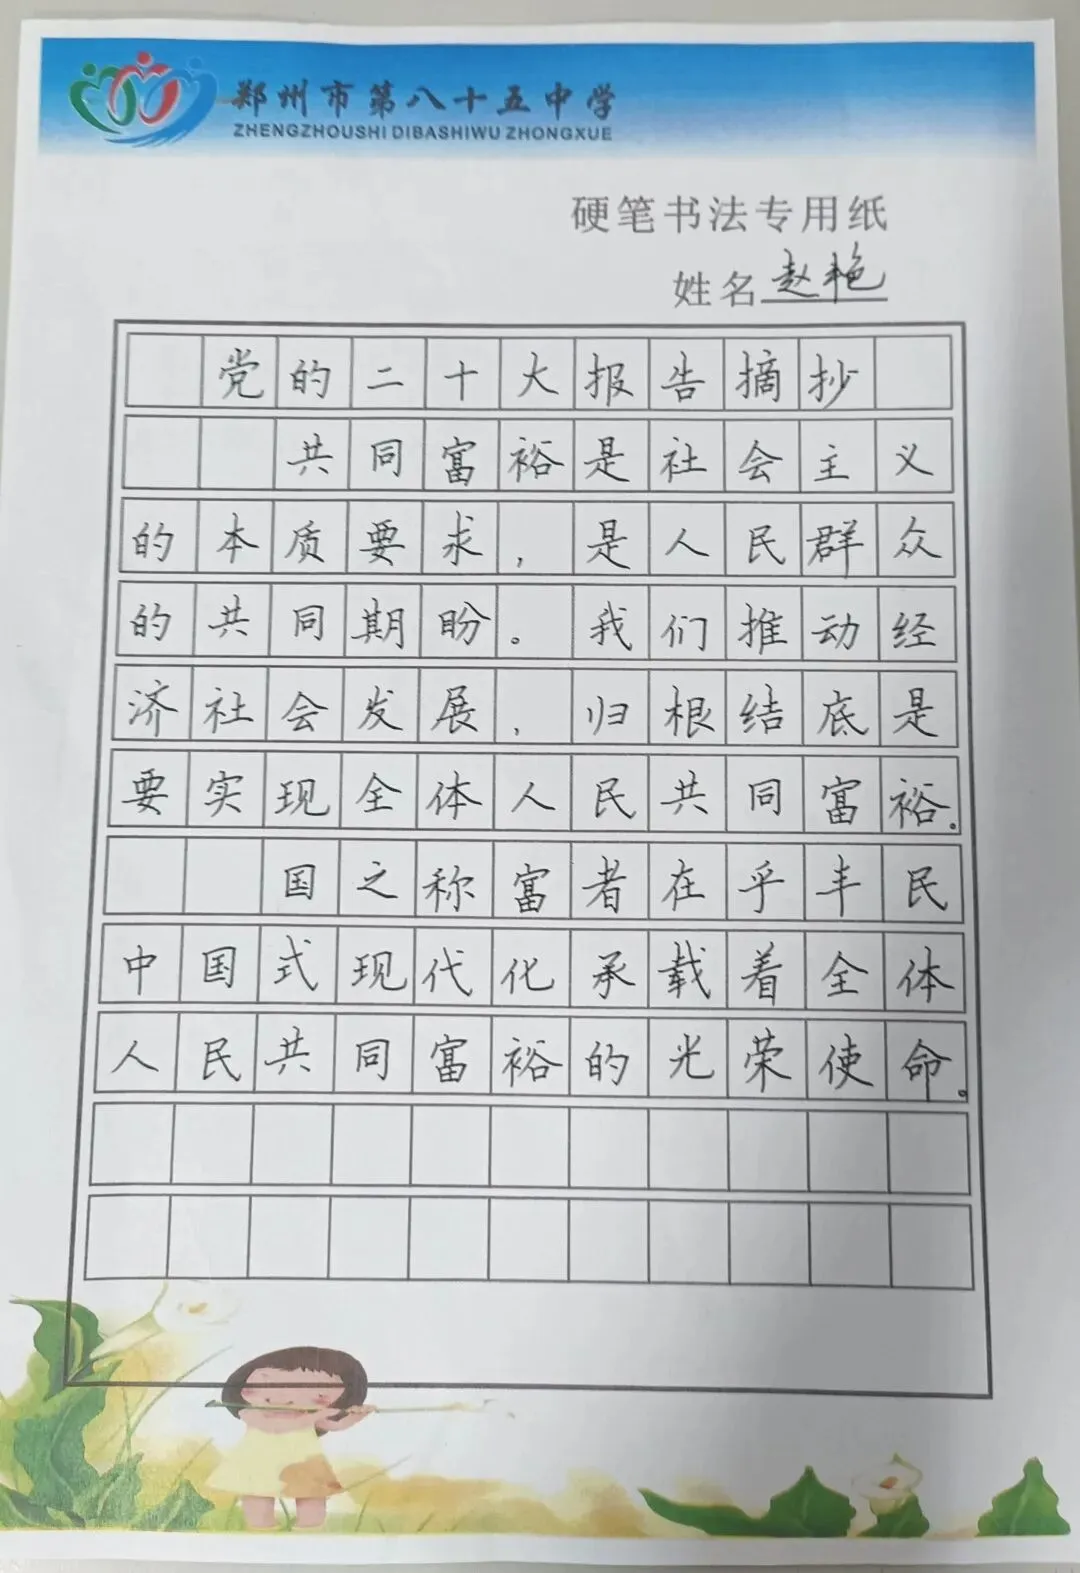 郑州市第八十五中学
ZHENGZHOUSHI DIBASHIWU ZHONGXUE
硬笔书法专用纸
姓名赵艳
党的二十大报告摘抄
共同富裕是社会主义
的本质要求,是人民群众
的共同期盼。我们推动经
济社会发展,归根结底是
要实现全体人民共同富裕。
国之称富者在乎丰民
中国式现代化承载着全体
人民共同富裕的光荣使命。